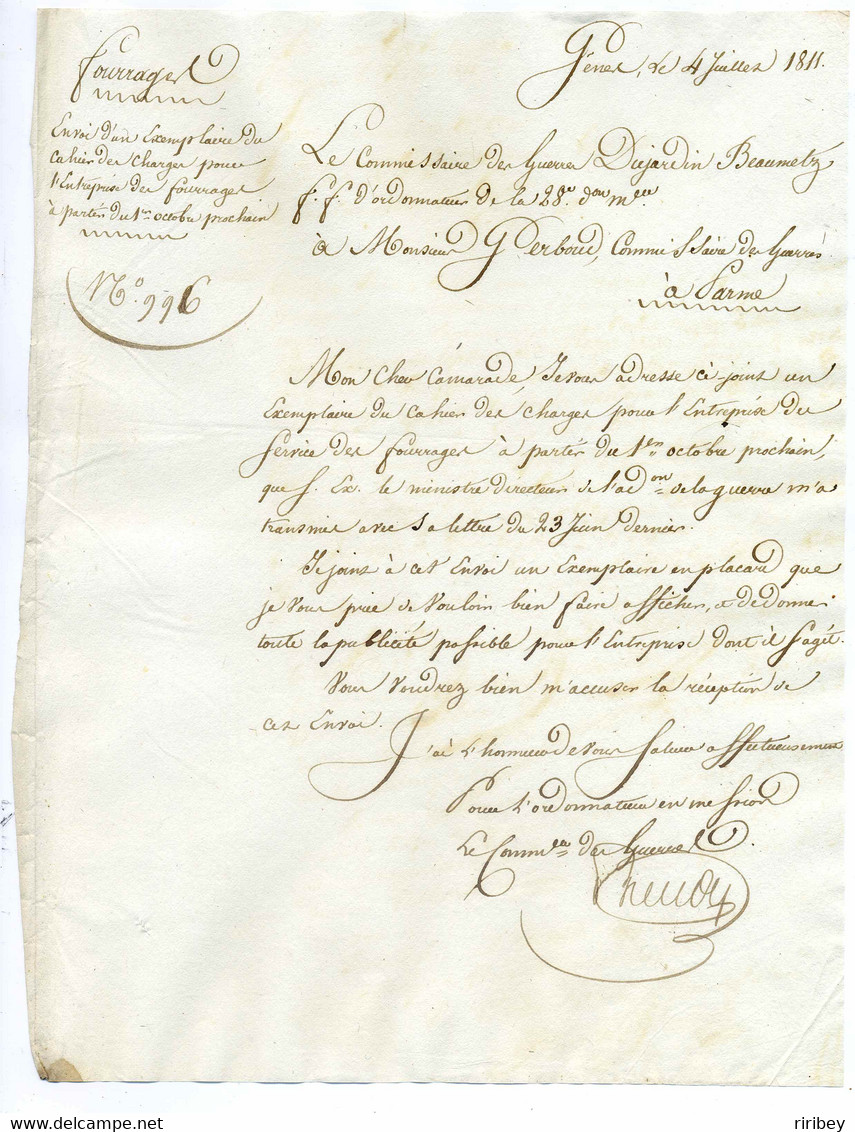 Gênes, le 4 Juillet 1811.
Fourrages
Envoi d'un Exemplaire du
Cahier des Charges pour
l'Entreprise des fourrages
à partir du 1er octobre prochain
N.o 996
Le Commissaire des Guerres Dujardin Beaumetz
f. f. d'ordonnateur de la 28.e don mre
à Monsieur Gerboud, Commissaire des Guerres
à Parme
Mon Cher Camarade, Je vous adresse ci-joint un
Exemplaire du Cahier des Charges pour l'Entreprise du
Service des fourrages à partir du 1er octobre prochain,
que S. Ex. le ministre directeur de l'adon de la guerre m'a
transmis avec sa lettre du 23 Juin dernier.
Je joins à cet Envoi un Exemplaire en placard que
je vous prie de vouloir bien faire afficher, et de donner
toute la publicité possible pour l'Entreprise dont il s'agit.
Vous voudrez bien m'accuser la réception de
cet Envoi.
J'ai l'honneur de vous Saluer affectueusement
Pour L'ordonnateur en mission
Le Commre des Guerres
ribey